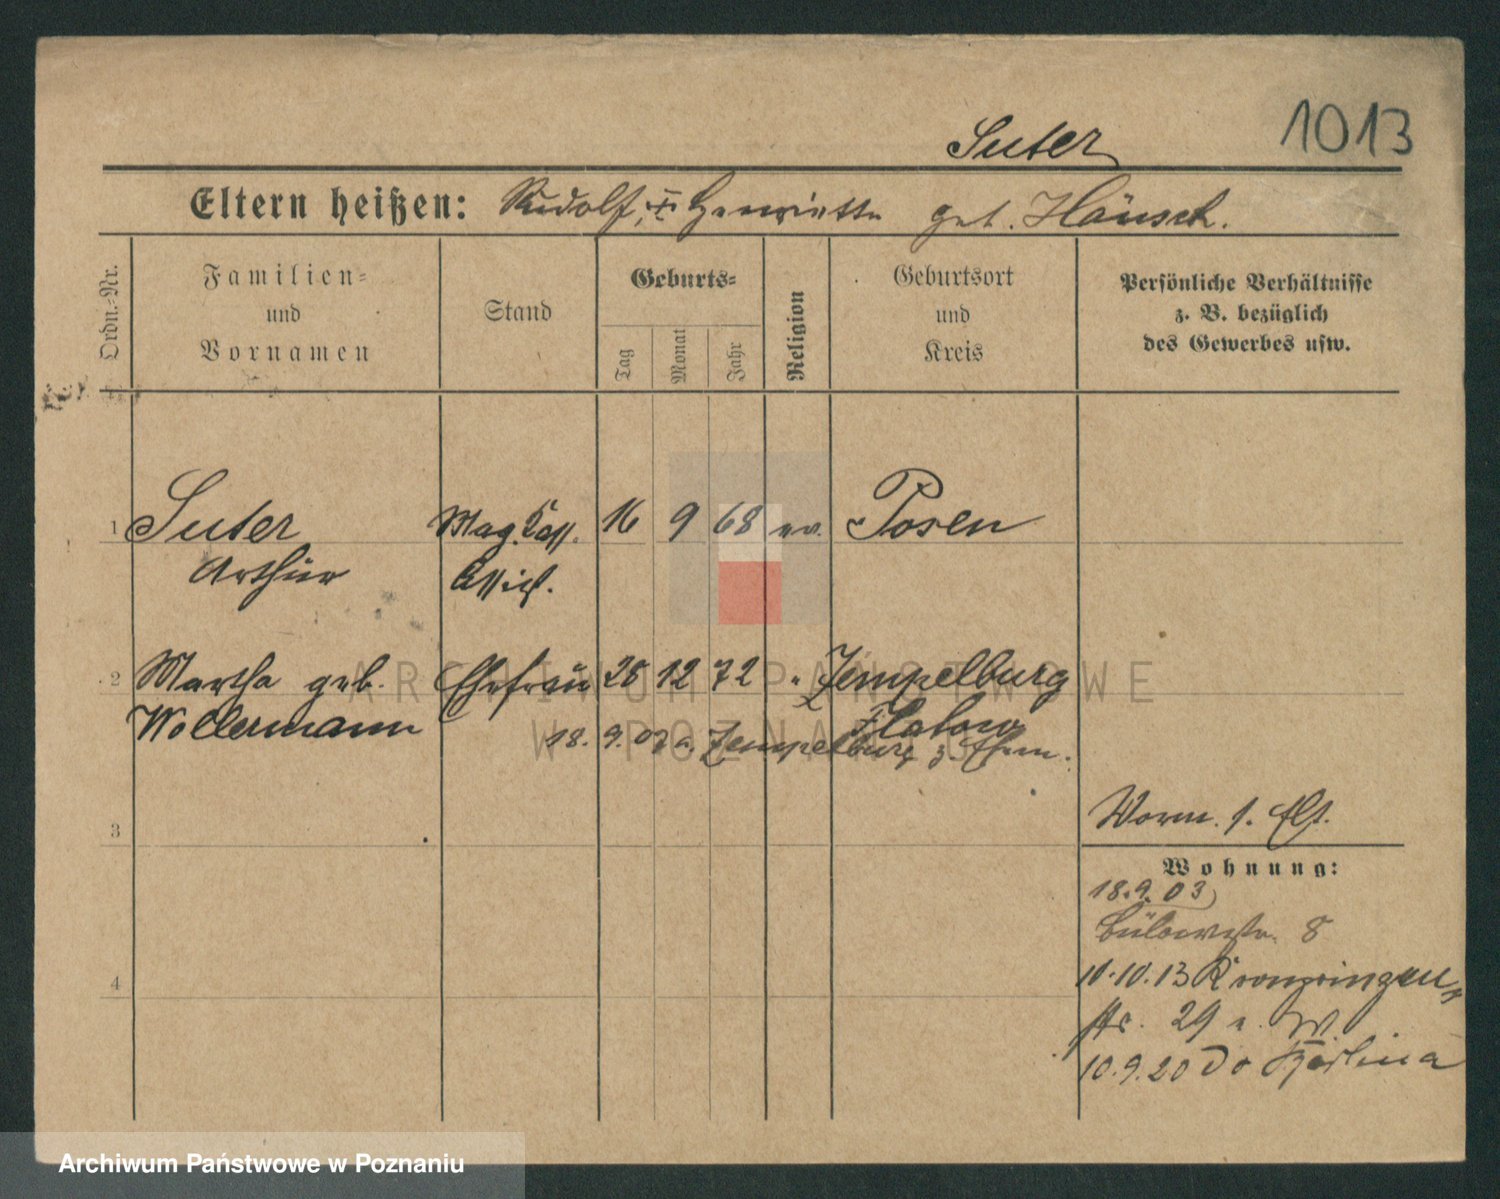 Suter
1013
Eltern heißen: Rudolf, Henriette geb. Hänsch.
Ordn.-Nr.
Familien-
und
Vornamen
Stand
Geburts-
Tag
Monat
Jahr
Religion
Geburtsort
und
Kreis
Persönliche Verhältnisse
z. B. bezüglich
des Gewerbes usw.
1 Suter Mag. Kass. 16 9 68 ev. Posen
Arthur Assist.
2 Martha geb. Ehefrau 28 12 72 " Zempelburg
Wollermann Flatow
18. 9. 03 a. Zempelburg z. Ehem.
3
Worm. s. Elt.
Wohnung:
18.9.03
Bülowstr. 8
4
10.10.13 Kronprinzen-
str. 29 W.
10.9.20 do
ARCHIWUM PAŃSTWOWE
W POZNANIU
Archiwum Państwowe w Poznaniu